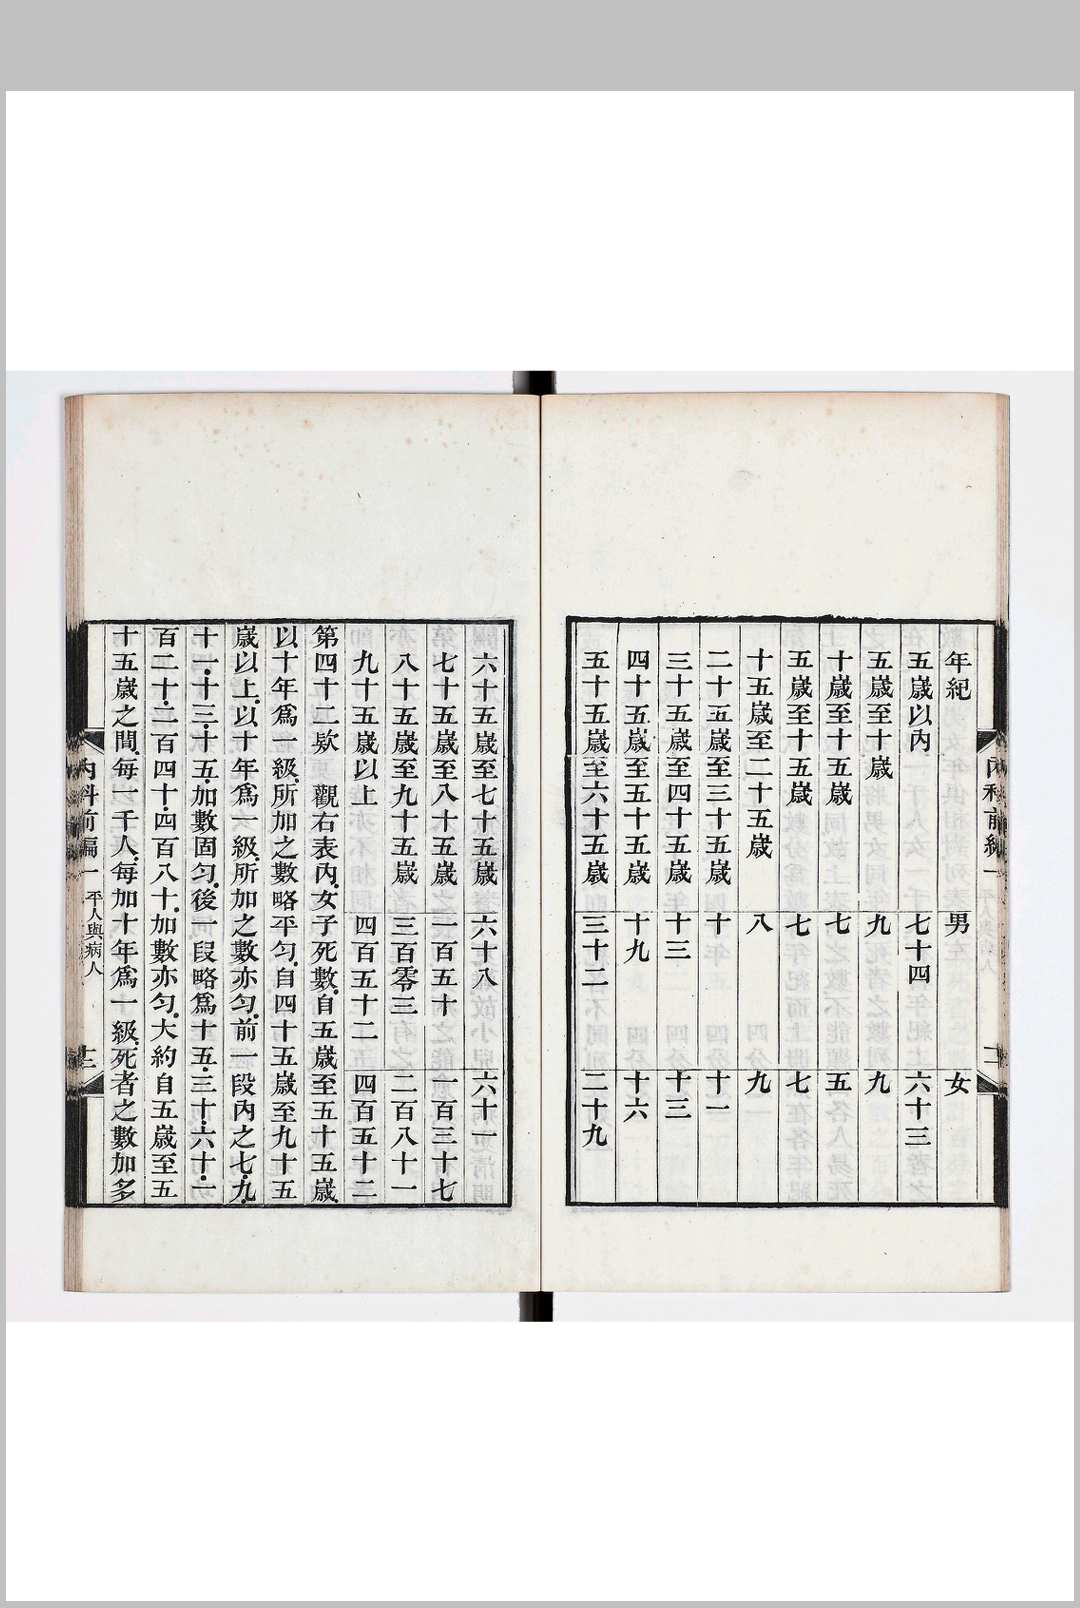 年紀 男 女
五歲以內 七十四 六十三
五歲至十歲 九 九
十歲至十五歲 七 五
五歲至十五歲 七 七
十五歲至二十五歲 八 九
二十五歲至三十五歲 十一 十一
三十五歲至四十五歲 十三 十三
四十五歲至五十五歲 十九 十六
五十五歲至六十五歲 三十二 二十九
內科前編一 平人與病人 十二
六十五歲至七十五歲 六十八 六十一
七十五歲至八十五歲 一百五十 一百三十七
八十五歲至九十五歲 三百零三 二百八十一
九十五歲以上 四百五十二 四百五十二
第四十二欵 觀右表內女子死數自五歲至五十五歲
以十年爲一級所加之數略平匀自四十五歲至九十五
歲以上以十年爲一級所加之數亦匀前一段內之七九
十一十三十五加數固匀後一段略爲十五三十六十一
百二十二百四十四百八十加數亦匀大約自五歲至五
十五歲之間每一千人每加十年爲一級死者之數加多
內科前編一 平人與病人 十二